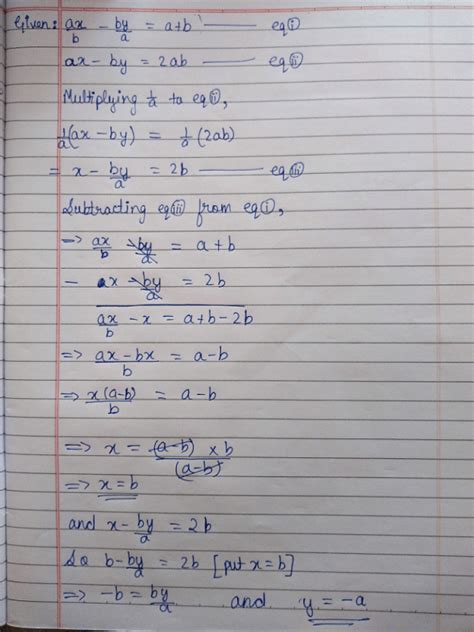 Given: ax/b - by/a = a+b —— eq(i)
ax - by = 2ab —— eq(ii)
Multiplying 1/a to eq(ii),
1/a(ax - by) = 1/a (2ab)
= x - by/a = 2b —— eq(iii)
Subtracting eq(iii) from eq(i),
=> ax/b - by/a = a + b
- x - by/a = 2b
ax/b - x = a+b-2b
=> ax-bx/b = a-b
=> x(a-b)/b = a-b
=> x = (a-b) × b/(a-b)
=> x = b
and x - by/a = 2b
So b - by/a = 2b [put x = b]
=> -b = by/a and y = -a